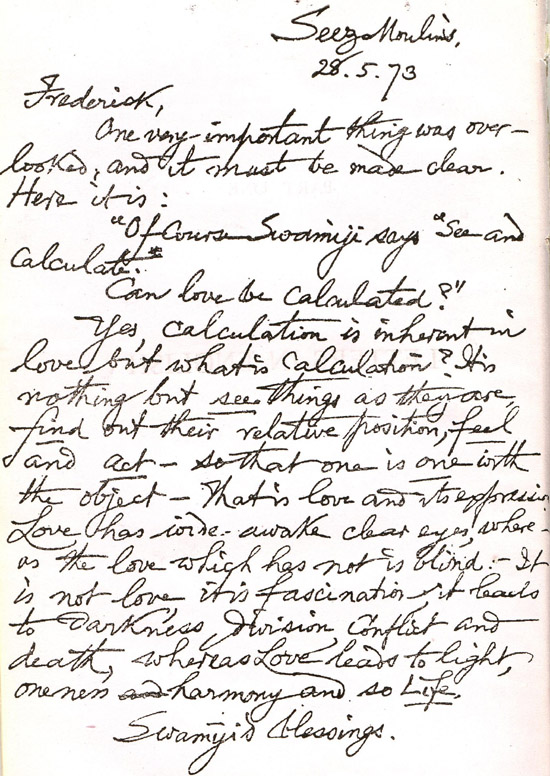 Seez Moulins,
28.5.73
Frederick,
One very important thing was over-
looked, and it must be made clear.
Here it is:
"Of Course Swamiji says "See and
Calculate."
Can love be calculated?"
Yes, calculation is inherent in
love but what is calculation? It is
nothing but see things as they are,
find out their relative position, feel
and act - so that one is one with
the object - That is love and its expression
Love has wide-awake clear eyes, where-
as the love which has not is blind. - It
is not love, it is fascination, it leads
to Darkness, division, conflict and
death, whereas Love leads to light,
oneness and harmony and so Life.
Swamiji's blessings.